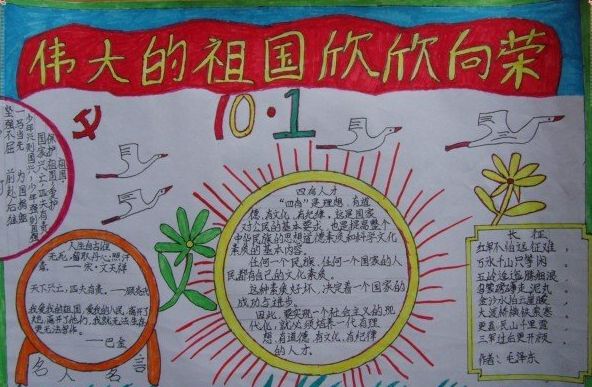 伟大的祖国欣欣向荣
10·1
祖国,
保护祖国,爱护
国家兴亡,匹夫有责
少年兴则国兴,少年强则国强
一马当先 为国捐躯
坚强不屈 前赴后继
人生自古谁
无死,留取丹心照汗
青。——宋·文天祥
天下兴亡,匹夫有责。——顾炎武
我爱我的祖国,爱我的人民,离开了
她,离开了他们,我就无法生存,
更无法写作。
——巴金
名人名言
四有人才
"四有"是理想,有道
德,有文化,有纪律,这是国家
对公民的基本要求,也是提高整个
中华民族的思想道德素质和科学文化
素质的基本内容。
任何一个民族,任何一个国家的人
民都有自己的文化素质。
这种素质好坏,决定着一个国家的
成功与进步。
因此,要实现一个社会主义的现
代化,就必须培养一代有理
想,有道德,有文化,有纪律
的人才。
长征
红军不怕远征难,
万水千山只等闲
五岭逶迤腾细浪
乌蒙磅礴走泥丸
金沙水拍云崖暖
大渡桥横铁索寒
更喜岷山千里雪
三军过后尽开颜。
作者:毛泽东